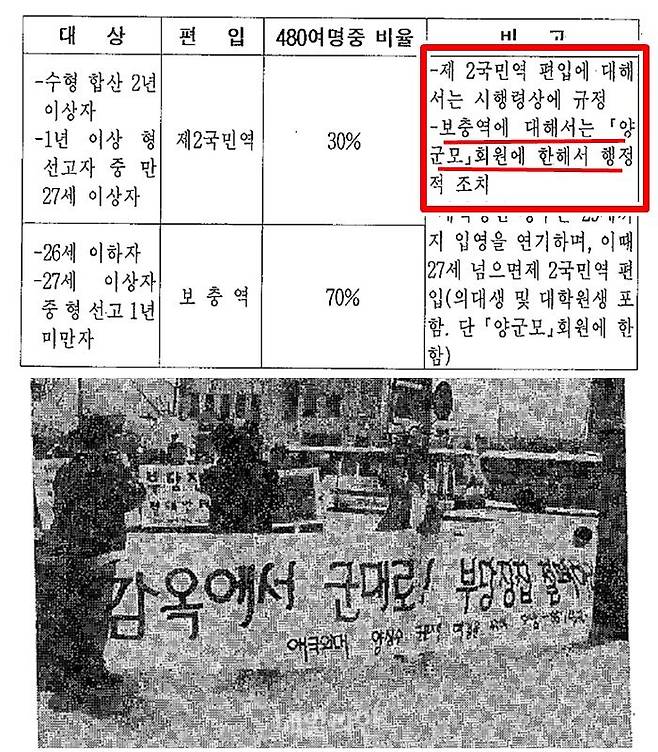 대 상 편 입 480여명중 비율 비 고
-수형 합산 2년
이상자
-1년 이상 형
선고자 중 만
27세 이상자
제2국민역
30%
-제 2국민역 편입에 대해
서는 시행령상에 규정
-보충역에 대해서는 「양
군모」회원에 한해서 행정
적 조치
-26세 이하자
-27세 이상자
중 형 선고 1년
미만자
보 충 역
70%
지 입영을 연기하며, 이때
27세 넘으면 제 2국민역 편
입(의대생 및 대학원생 포
함. 단 「양군모」회원에 한
함)
감옥에서 군대로! 부당징집
애국외대 양심수